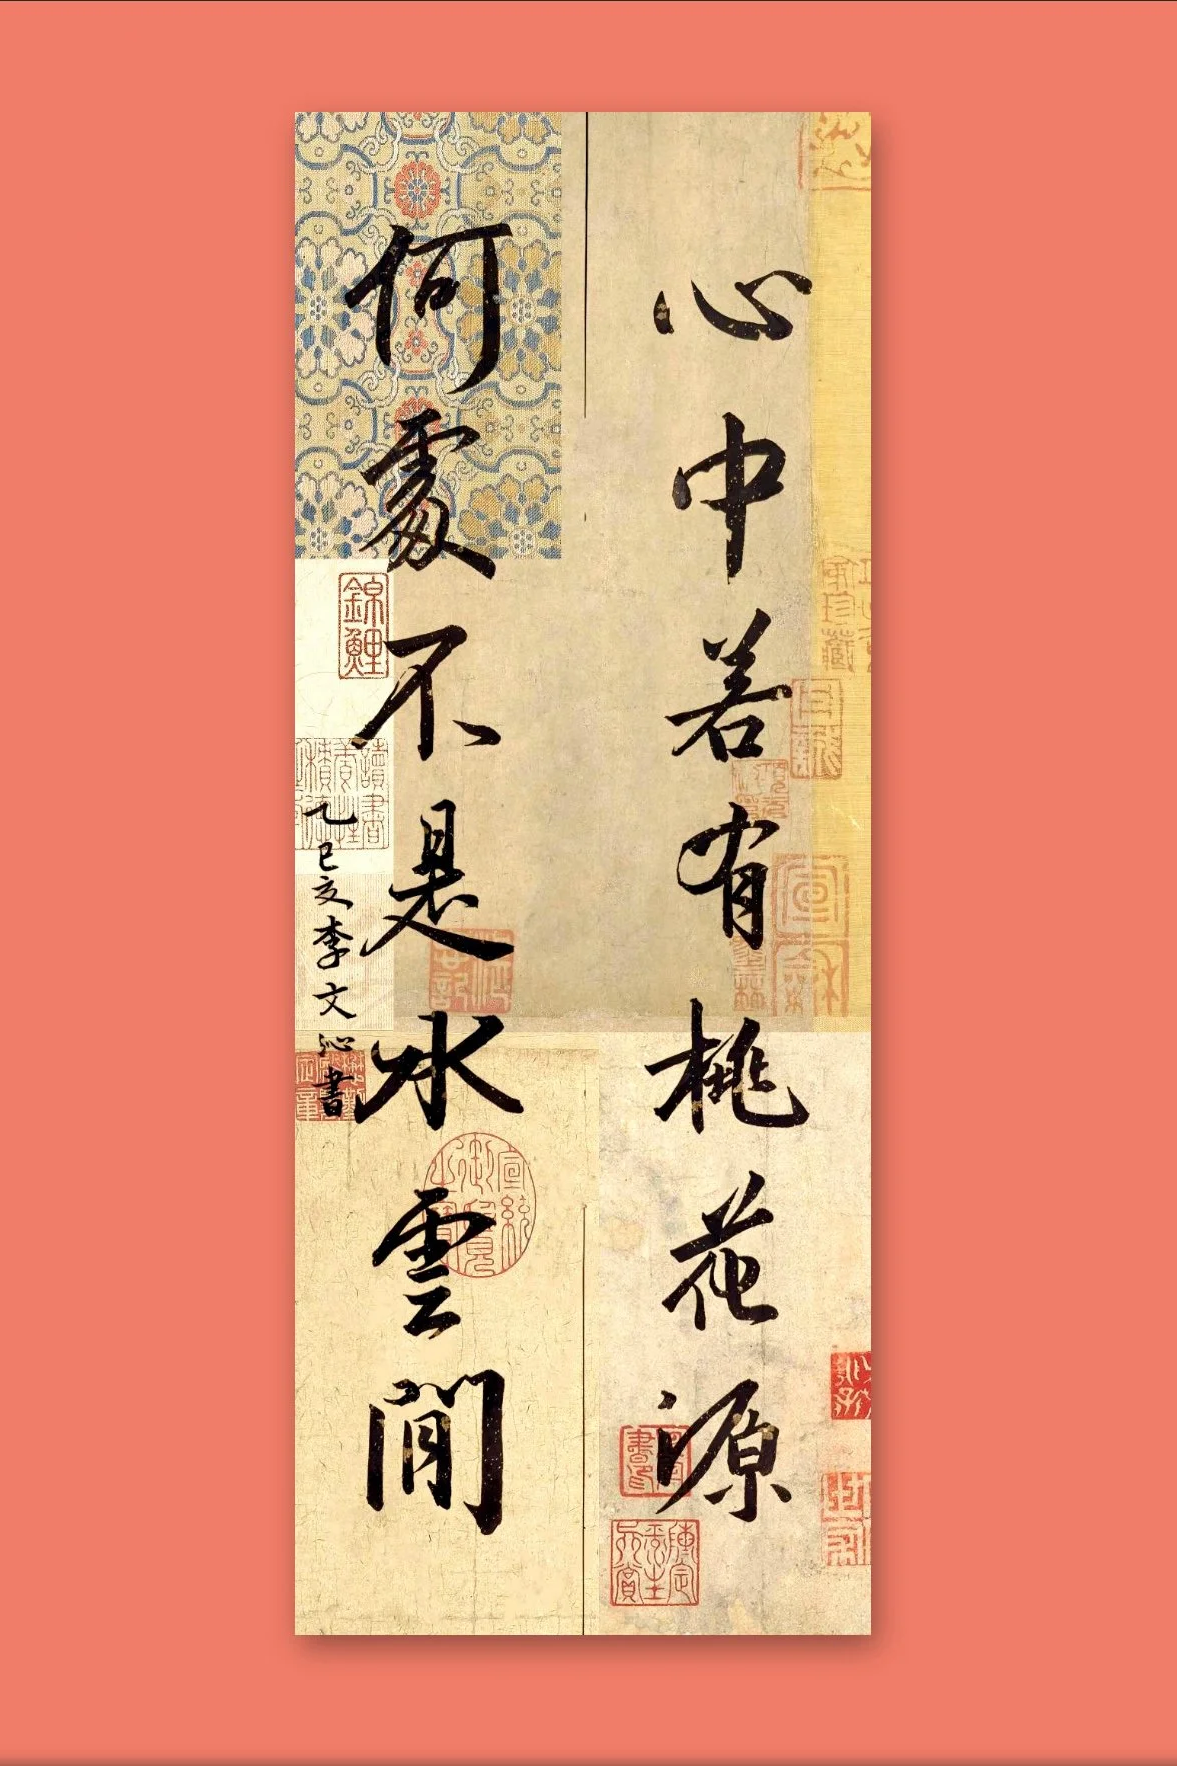 心中若有桃花源
何處不是水雲間
乙巳夏李文沁書
錦鯉